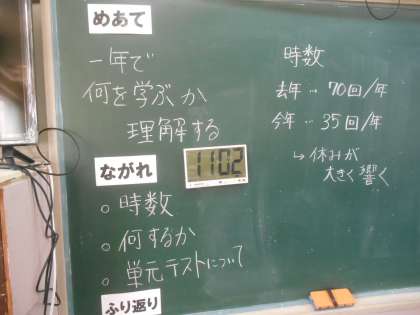 めあて
一年で
何を学ぶか
理解する
ながれ
○時数
○何するか
○単元テストについて
ふり返り
1102
時数
去年…70回/年
今年…35回/年
↳休みが
大きく響く